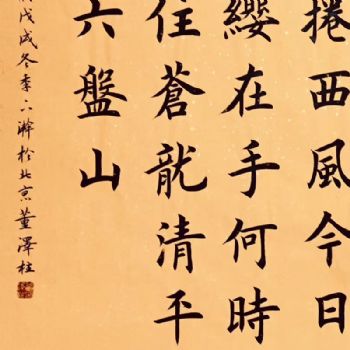 捲西風今日
纓在手何時
住蒼龍清平
六盤山
戊戌冬季下澣於北京董澤柱